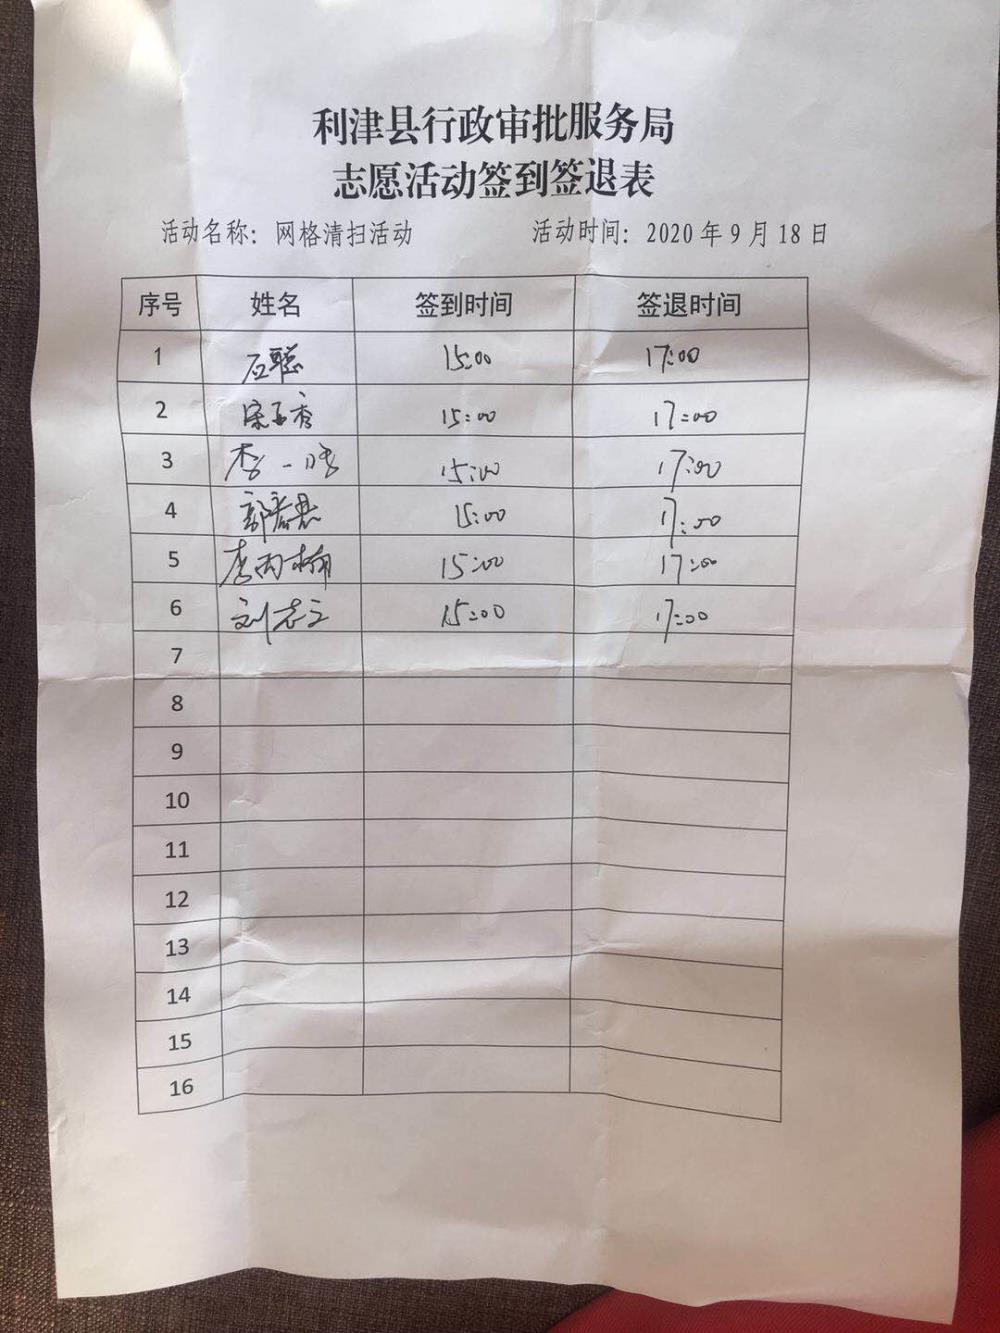 利津县行政审批服务局
志愿活动签到签退表
活动名称：网格清扫活动 活动时间：2020年9月18日
序号 姓名 签到时间 签退时间
1 石聪 15:00 17:00
2 15:00 17:00
3 李一鸣 15:00 17:00
4 15:00 17:00
5 李雨楠 15:00 17:00
6 刘志立 15:00 17:00
7
8
9
10
11
12
13
14
15
16